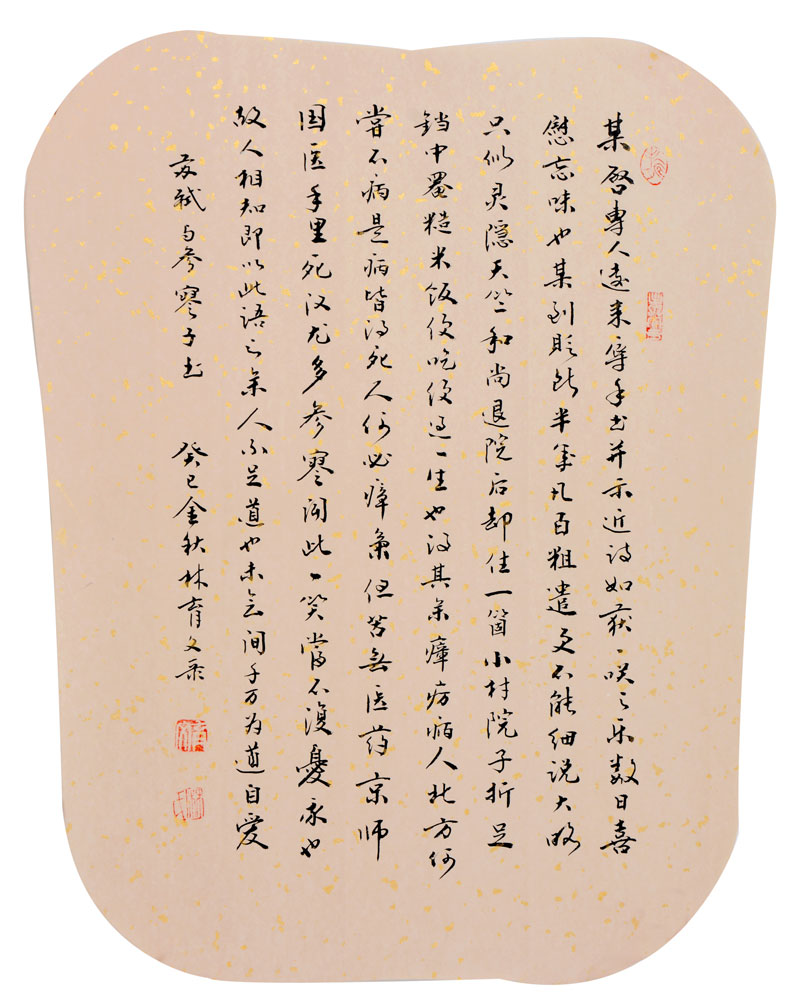 某啓專人遠来辱手书并示近诗如获一咲之乐数日喜
慰忘味也某到贬所半年凡百粗遣更不能细说大略
只似灵隐天竺和尚退院后却住一箇小村院子折足
铛中罨糙米饭便吃便过一生也得其余瘴疠病人北方何
尝不病是病皆得死人何必瘴氣但苦無医药京师
国医手里死汉尤多参寥闻此一笑當不復憂我也
故人相知即以此语之余人不足道也未会间千万为道自爱
苏轼与参寥子书 癸巳金秋林育文录